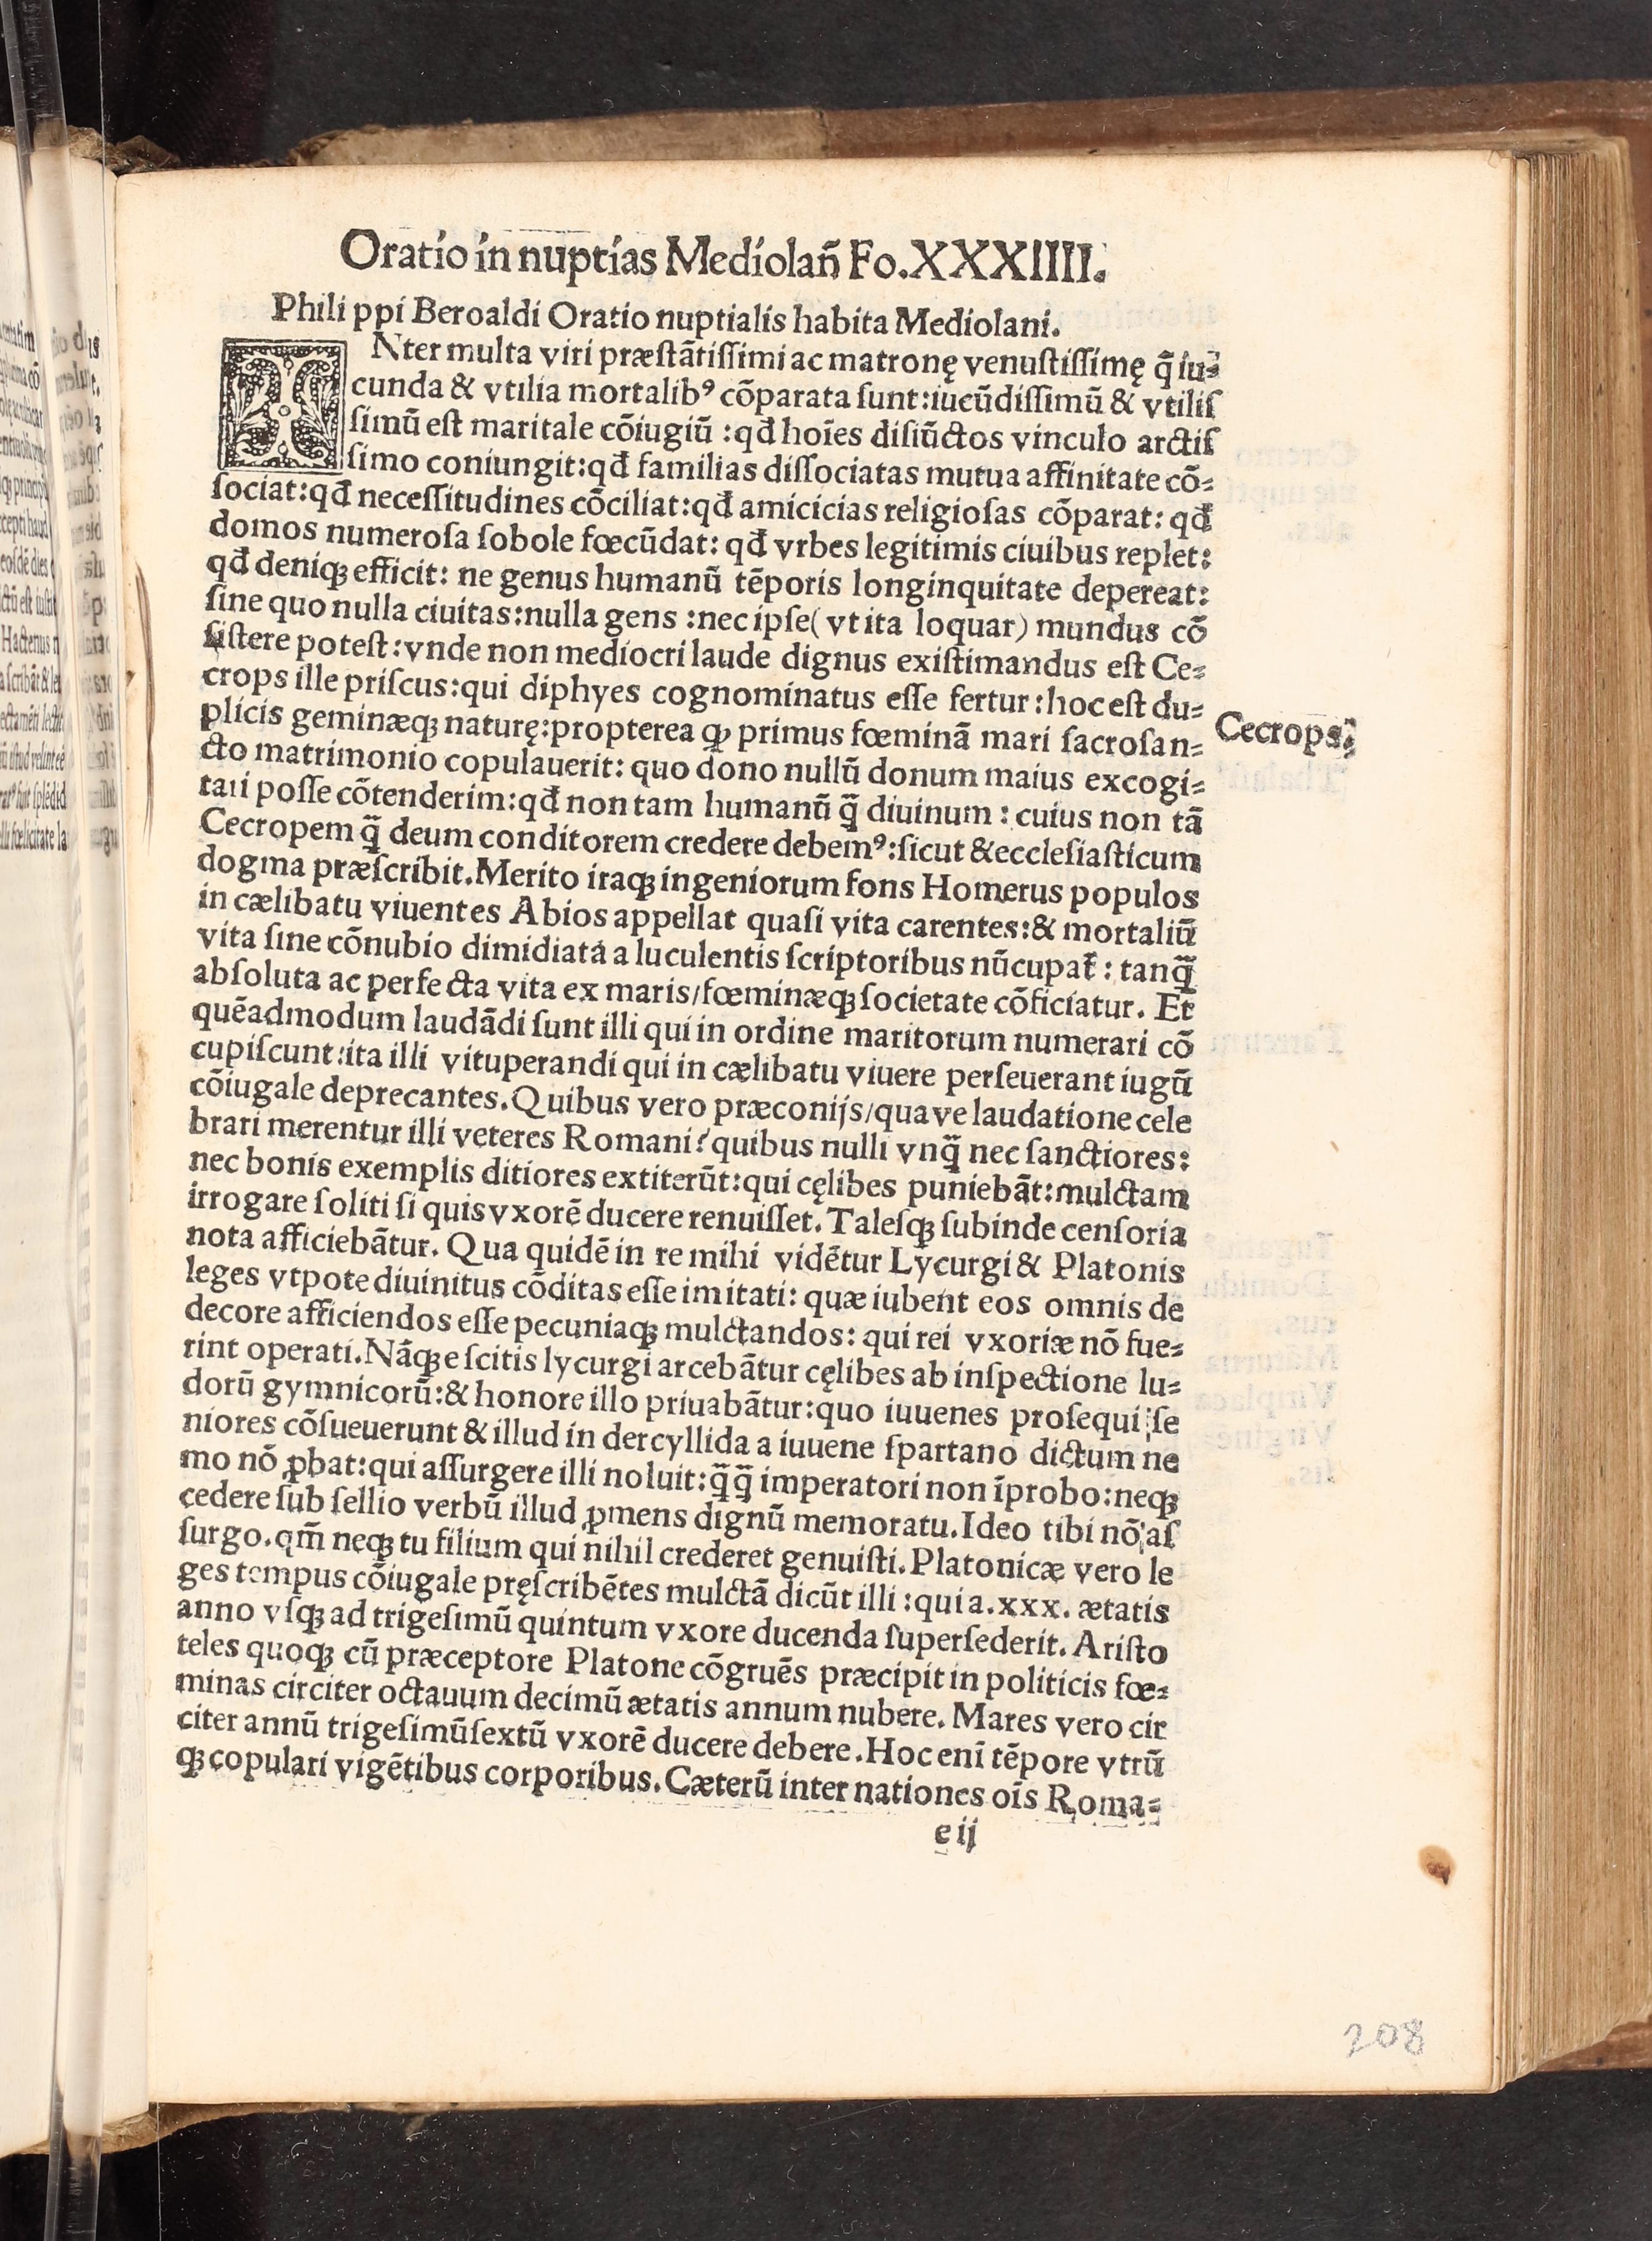 Oratio in nuptias Mediolañ Fo.XXXIIII.
Phili ppi Beroaldi Oratio nuptialis habita Mediolani.
INter multa viri præſtãtiſſimi ac matronę venuſtiſſimę q̃ iu⸗
cunda & vtilia mortalibꝰ cõparata ſunt:iucũdiſſimũ & vtiliſ
ſimũ eſt maritale cõiugiũ :qđ hoĩes diſiũctos vinculo arctiſ
ſimo coniungit:qđ familias diſſociatas mutua affinitate cõ⸗
ſociat:qđ neceſſitudines cõciliat:qđ amicicias religioſas cõparat: qđ
domos numeroſa ſobole fœcũdat: qđ vrbes legitimis ciuibus replet:
qđ deniqꝫ efficit: ne genus humanũ tẽporis longinquitate depereat:
ſine quo nulla ciuitas:nulla gens :nec ipſe( vt ita loquar) mundus cõ
ſiſtere poteſt:vnde non mediocri laude dignus exiſtimandus eſt Ce⸗
crops ille priſcus:qui diphyes cognominatus eſſe fertur:hoc eſt du⸗
plicis geminæqꝫ naturę:propterea ꝙ primus fœminã mari ſacroſan⸗
Cecrops.
cto matrimonio copulauerit: quo dono nullũ donum maius excogi⸗
tari poſſe cõtenderim:qđ non tam humanũ q̃ diuinum : cuius non tã
Cecropem q̃ deum conditorem credere debemꝰ:ſicut & eccleſiaſticum
dogma præſcribit.Merito iraqꝫ ingeniorum fons Homerus populos
in cælibatu viuentes Abios appellat quaſi vita carentes:& mortaliũ
vita ſine cõnubio dimidiata a luculentis ſcriptoribus nũcupat̃ : tanq̃
abſoluta ac perfecta vita ex maris/fœminæqꝫ ſocietate cõficiatur. Et
quẽadmodum laudãdi ſunt illi qui in ordine maritorum numerari cõ
cupiſcunt:ita illi vituperandi qui in cælibatu viuere perſeuerant iugũ
cõiugale deprecantes.Quibus vero præconijs/qua ve laudatione cele
brari merentur illi veteres Romani?quibus nulli vnq̃ nec ſanctiores:
nec bonis exemplis ditiores extiterũt:qui cęlibes puniebãt:mulctam
irrogare ſoliti ſi quis vxorẽ ducere renuiſſet. Taleſqꝫ ſubinde cenſoria
nota afficiebãtur. Qua quidẽ in re mihi vidẽtur Lycurgi & Platonis
leges vtpote diuinitus cõditas eſſe imitati: quæ iubent eos omnis de
decore afficiendos eſſe pecuniaqꝫ mulctandos: qui rei vxoriæ nõ fue⸗
rint operati.Nãqꝫ e ſcitis lycurgi arcebãtur cęlibes ab inſpectione lu⸗
dorũ gymnicorũ:& honore illo priuabãtur:quo iuuenes proſequi ſe
niores cõſueuerunt & illud in dercyllida a iuuene ſpartano dictum ne
mo nõ ꝓbat:qui aſſurgere illi noluit:q̃q̃ imperatori non ĩprobo:neqꝫ
cedere ſub ſellio verbũ illud ꝓmens dignũ memoratu.Ideo tibi nõ aſ
ſurgo.qm̃ neqꝫ tu filium qui nihil crederet genuiſti.Platonicæ vero le
ges tempus cõiugale pręſcribẽtes mulctã dicũt illi :qui a.xxx. ætatis
anno vſqꝫ ad trigeſimũ quintum vxore ducenda ſuperſederit. Ariſto
teles quoqꝫ cũ præceptore Platone cõgruẽs præcipit in politicis fœ⸗
minas circiter octauum decimũ ætatis annum nubere. Mares vero cir
citer annũ trigeſimũſextũ vxorẽ ducere debere.Hoc enĩ tẽpore vtrũ
qꝫ copulari vigẽtibus corporibus. Cæterũ inter nationes oĩs Roma⸗
e ij
208